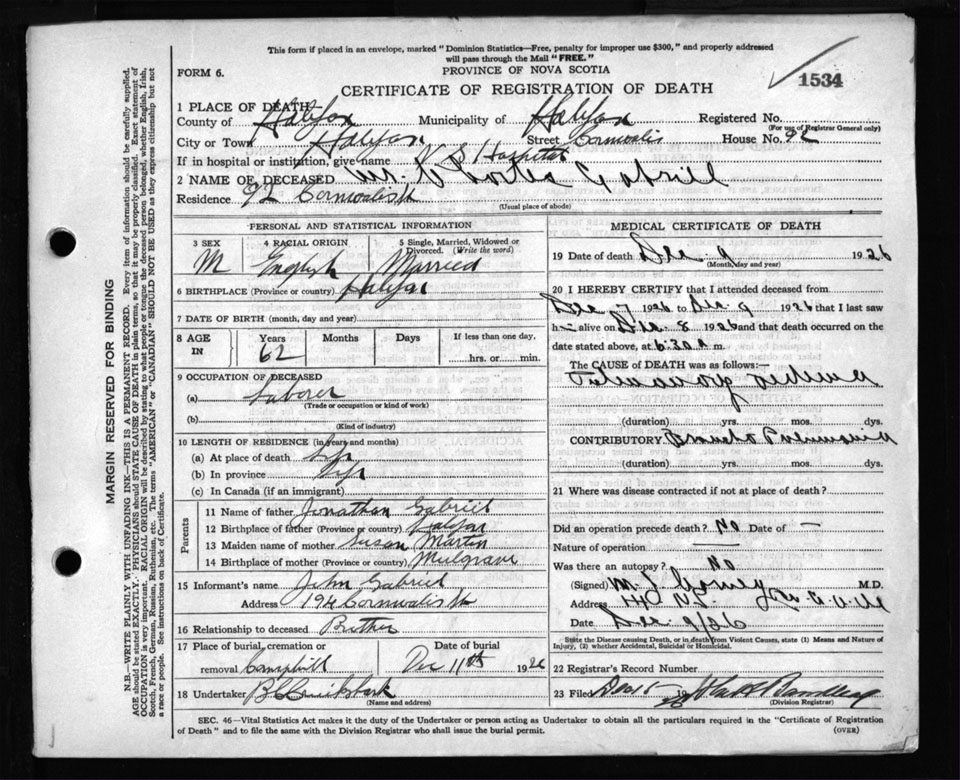 This form if placed in an envelope, marked "Dominion Statistics—Free, penalty for improper use $300," and properly addressed
will pass through the Mail "FREE."
FORM 6.
PROVINCE OF NOVA SCOTIA
1534
CERTIFICATE OF REGISTRATION OF DEATH
1 PLACE OF DEATH
County of Halifax Municipality of Halifax Registered No.
(For use of Registrar General only)
City or Town Halifax Street Cornwalis House No. 92
If in hospital or institution, give name V. G. Hospital
2 NAME OF DECEASED Mr. Charles Gabriel
Residence 92 Cornwalis St
(Usual place of abode)
PERSONAL AND STATISTICAL INFORMATION
3 SEX 4 RACIAL ORIGIN 5 Single, Married, Widowed or Divorced. (Write the word)
M English Married
6 BIRTHPLACE (Province or country) Halifax
7 DATE OF BIRTH (month, day and year)
8 AGE IN Years Months Days If less than one day,
62 hrs. or min.
9 OCCUPATION OF DECEASED
(a) Laborer
(Trade or occupation or kind of work)
(b)
(Kind of industry)
10 LENGTH OF RESIDENCE (in years and months)
(a) At place of death Life
(b) In province Life
(c) In Canada (if an immigrant)
Parents
11 Name of father Jonathan Gabriel
12 Birthplace of father (Province or country) Halifax
13 Maiden name of mother Susan Martin
14 Birthplace of mother (Province or country) Mulgrave
15 Informant's name John Gabriel
Address 194 Cornwalis St
16 Relationship to deceased Brother
17 Place of burial, cremation or Date of burial
removal Camphill Dec 11th 1926
18 Undertaker
(Name and address)
MEDICAL CERTIFICATE OF DEATH
19 Date of death Dec 9 1926
(Month, day and year)
20 I HEREBY CERTIFY that I attended deceased from
Dec 7 1926 to Dec 9 1926 that I last saw
h alive on Dec 8 1926 and that death occurred on
date stated above, at 6.30 a m.
The CAUSE OF DEATH was as follows:—
Pulmonary oedema
(duration) yrs. mos. dys.
CONTRIBUTORY Broncho Pneumonia
(duration) yrs. mos. dys.
21 Where was disease contracted if not at place of death?
Did an operation precede death? No Date of —
Nature of operation —
Was there an autopsy? No
(Signed) M.D.
Address
Date Dec 9/26
State the Disease causing Death, or in death from Violent Causes, state (1) Means and Nature of
Injury, (2) whether Accidental, Suicidal or Homicidal.
22 Registrar's Record Number
23 Filed Dec 15 1926
(Division Registrar)
SEC. 46—Vital Statistics Act makes it the duty of the Undertaker or person acting as Undertaker to obtain all the particulars required in the "Certificate of Registration
of Death" and to file the same with the Division Registrar who shall issue the burial permit.
(OVER)
MARGIN RESERVED FOR BINDING
N.B.—WRITE PLAINLY WITH UNFADING INK—THIS IS A PERMANENT RECORD. Every item of information should be carefully supplied.
AGE should be stated EXACTLY. PHYSICIANS should STATE CAUSE OF DEATH in plain terms, so that it may be properly classified. Exact statement of
OCCUPATION is very important. RACIAL ORIGIN will be described by stating to what people or tongue the deceased person belonged, whether English, Irish,
Scotch, French, German, Russian, Ruthenian, etc. The terms "AMERICAN" or "CANADIAN" SHOULD NOT BE USED as they express citizenship but not
a race or people. See instructions on back of Certificate.